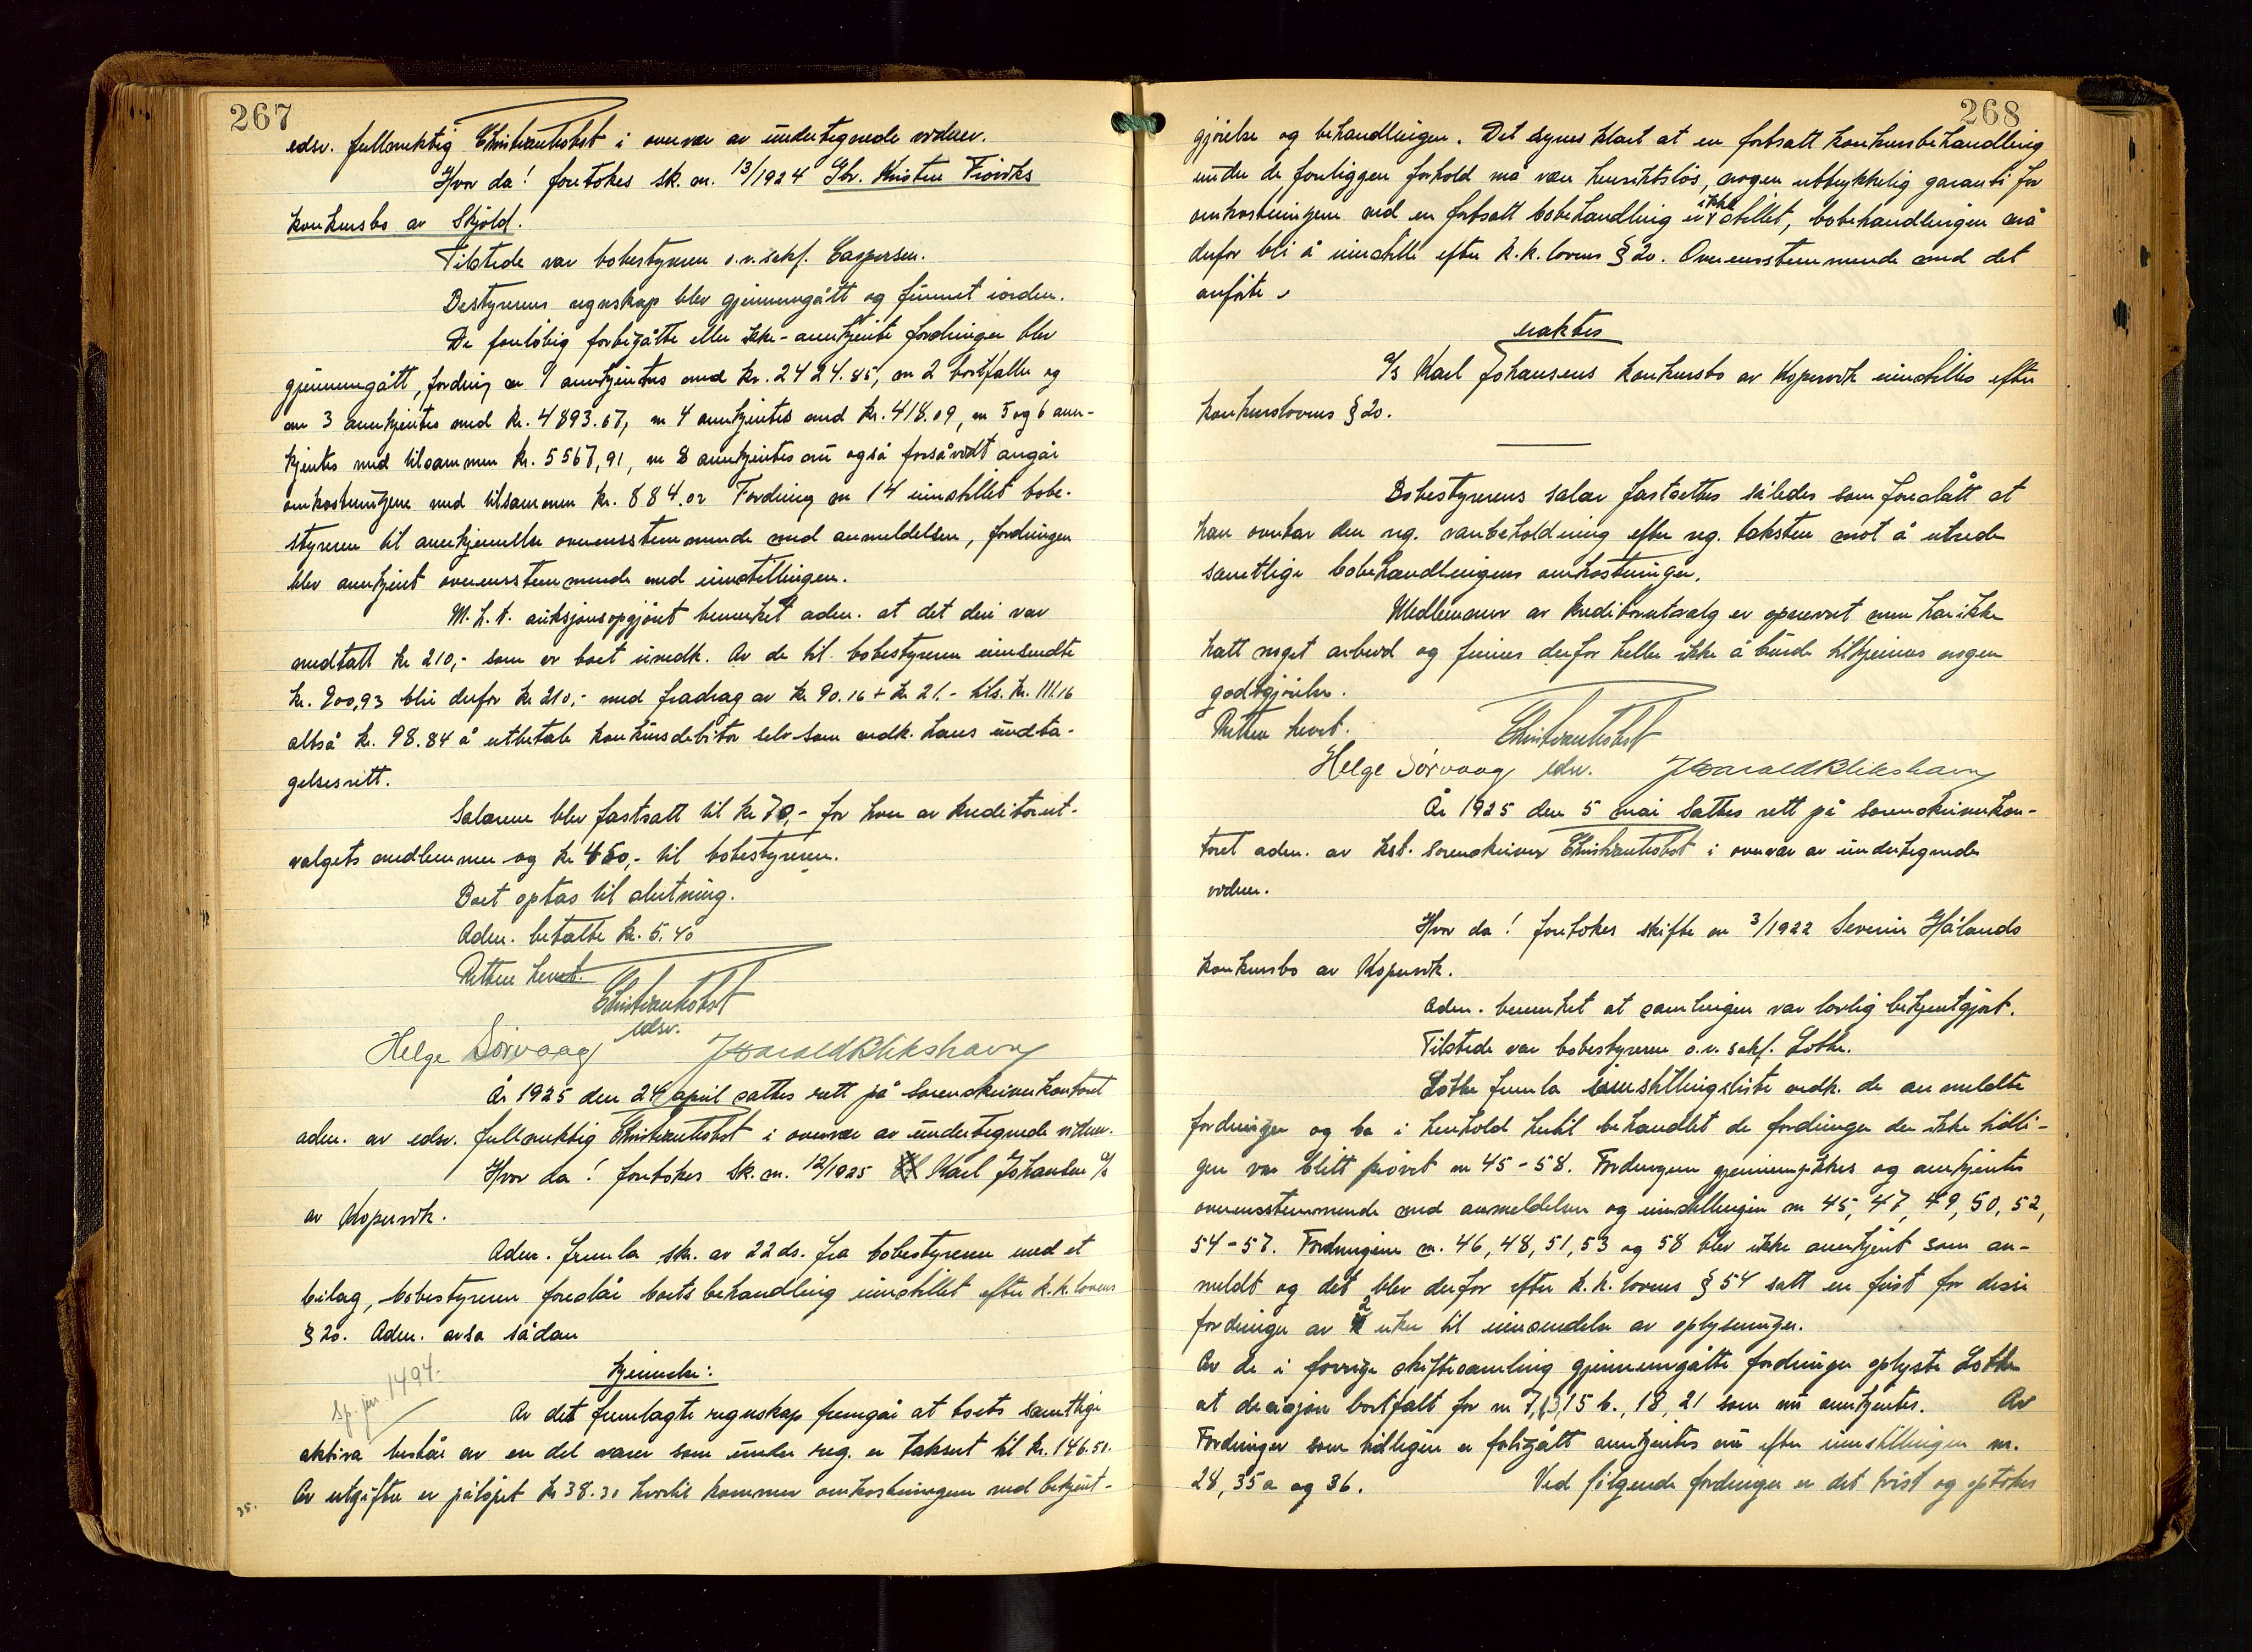 267
edsv. fullmektig Christian Kobst i overvær av undertegnede vidner.
Hvor da! foretokes sk. nr. 13/1924 Gbr. Kristen Tioviks
konkursbo av Skjold.
Tilstede var bobestyreren o.r.sakf. Caspersen.
Bestyrerens regnskap blev gjennemgått og funnet iorden.
De foreløbig forbigåtte eller ikke-anerkjente fordringer blev
gjennemgått, fordring nr 1 anerkjentes med kr. 2424.85, nr 2 bortfaller og
nr 3 anerkjentes med kr. 4893.67, nr 4 anerkjentes med kr. 418.09, nr 5 og 6 aner-
kjentes med tilsammen kr. 5567,91, nr 8 anerkjentes nu også forsåvidt angår
omkostningene med tilsammen kr. 884.02 Fordring nr 14 innstillet bobe-
styreren til anerkjennelse overensstemmende med anmeldelsen, fordringen
blev anerkjent overensstemmende med innstillingen.
M. h. t. auksjonsopgjøret bemerket adm. at det deri var
medtatt kr 210,- som er boet uvedk. Av de til bobestyreren innsendte
kr. 900,93 blir derfor kr 210,- med fradrag av kr 90.16 + kr 21.- tils. kr. 111.16
altså kr. 98.84 å utbetale konkursdebitor selv som vedk. hans undta-
gelsesrett.
Salærene blev fastsatt til kr 70,- for hver av kreditorut-
valgets medlemmer og kr 450,- til bobestyreren.
Boet optas til slutning.
Adm. betalte kr. 5.40
Retten hevet.
Christian Kobst
edsv.
Helge Sørvaag Harald Blikshavn
År 1925 den 24 april sattes rett på sorenskriverkontoret
adm. av edsv. fullmektig Christian Kobst i overvær av undertegnede vidner.
Hvor da! foretokes sk. nr. 12/1925 Karl Johansen A/S
av Kopervik.
Adm. fremla skr. av 22 ds. fra bobestyreren med et
bilag, bobestyreren foreslår boets behandling innstillet efter k.k. lovens
§ 20. Adm. avsa sådan
kjennelse:
Sp. jnr 1494.
Av det fremlagte regnskap fremgår at boets samtlige
aktiva består av en del varer som under reg. er taksert til kr. 146.50.
Av utgifter er påløpet kr 38.30 hvortil kommer omkostningene ved bekjent-
35.
268
gjørelse og behandlingen. Det synes klart at en fortsatt konkursbehandling
under de foreliggen forhold må være hensiktsløs, nogen uttrykkelig garanti for
omkostningene ved en fortsatt bobehandling er ikke stillet, bobehandlingen må
derfor bli å innstille efter k.k. lovens § 20. Overensstemmende med det
anførte
eraktes
A/S Karl Johansens konkursbo av Kopervik innstilles efter
konkurslovens § 20.
Bobestyrerens salær fastsettes således som foreslått at
han overtar den reg. varebeholdning efter reg. taksten mot å utrede
samtlige bobehandlingens omkostninger.
Medlemmer av kreditorutvalg er opnevnt men har ikke
hatt noget arbeid og finnes derfor heller ikke å burde tilkjennes nogen
godtgjørelse.
Retten hevet.
Christian Kobst
Helge Sørvaag edsv. Harald Blikshavn
År 1925 den 5 mai sattes rett på sorenskriverkon-
toret adm. av kst. sorenskriver Christian Kobst i overvær av undertegnede
vidner.
Hvor da! foretokes skifte nr 3/1922 Severin Hålands
konkursbo av Kopervik.
Adm. bemerket at samlingen var lovlig bekjentgjort.
Tilstede var bobestyreren o.r. sakf. Lothe.
Lothe fremla innstillingsliste vedk. de anmeldte
fordringer og ba i henhold hertil behandlet de fordringer der ikke tidli-
gere var blitt prøvet nr 45-58. Fordringene gjennemgikkes og anerkjentes
overensstemmende med anmeldelsen og innstillingen nr 45, 47, 49, 50, 52,
54-57. Fordringene nr. 46, 48, 51, 53 og 58 blev ikke anerkjent som an-
meldt og det blev derfor efter k.k. lovens § 54 satt en frist for disse
fordringer av 2 uker til innsendelse av oplysninger.
Av de i forrige skiftesamling gjennemgåtte fordringer oplyste Lothe
at decisjon bortfalt for nr 7, 13, 15 b., 18, 21 som nu anerkjentes. Av
Fordringer som tidligere er forbigått anerkjentes nu efter innstillingen nr.
28, 35a og 36. Ved følgende fordringer er det tvist og optokes